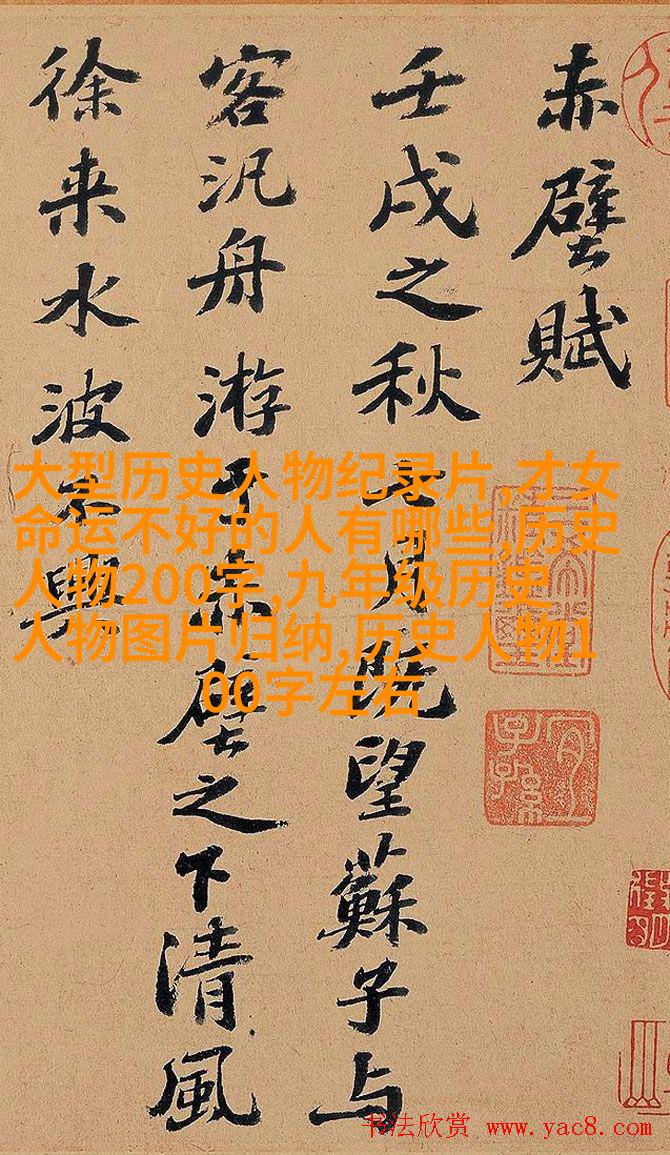 赤壁賦
壬戌之秋七月既望蘇子与
客汎舟游于赤壁之下清風
徐来水波不興
大型历史人物纪录片,才女
命运不好的人有哪些,历史
人物200字,九年级历史
人物图片归纳,历史人物1
00字左右
书法欣赏 www.yac8.com